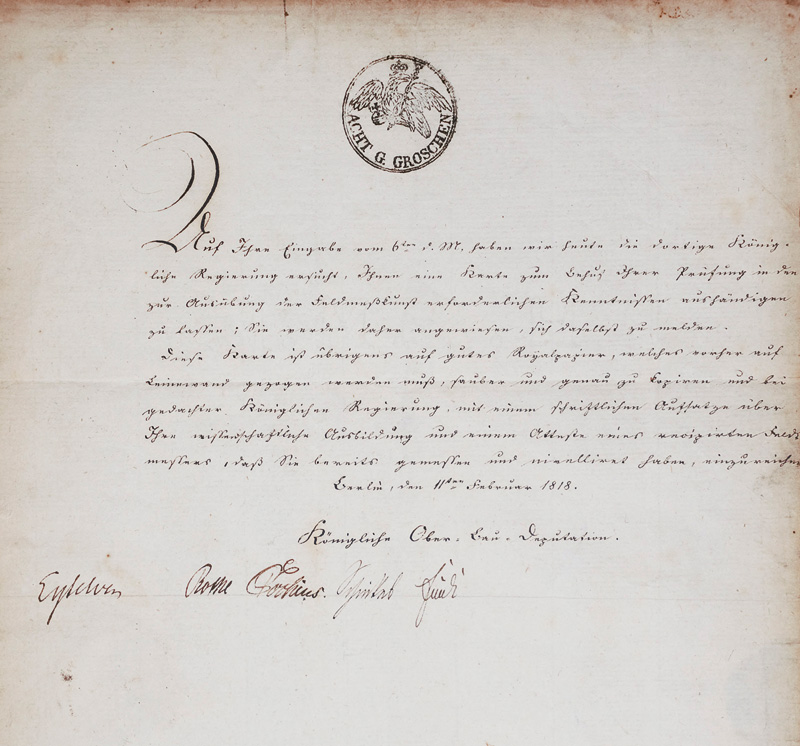 ACHT G. GROSCHEN
Auf Ihre Eingabe vom 6ten d. M. haben wir heute die dortige König-
liche Regierung ersucht, Ihnen eine Karte zum Behuf Ihrer Prüfung in den
zur Ausübung der Feldmeßkunst erforderlichen Kenntnissen aushändigen
zu lassen; Sie werden daher angewiesen, sich daselbst zu melden.
Diese Karte ist übrigens auf gutes Royalpapier, welches vorher auf
Leinewand gezogen werden muß, sauber und genau zu kopiren und bei
gedachter Königlichen Regierung, mit einem schriftlichen Aufsatze über
Ihre wissenschaftliche Ausbildung und einem Atteste eines rezipirten Feld-
messers, daß Sie bereits gemessen und nivelliret haben, einzureichen
Berlin, den 11ten Februar 1818.
Königliche Ober-Bau-Deputation.
Eytelwein Rothe Schinkel